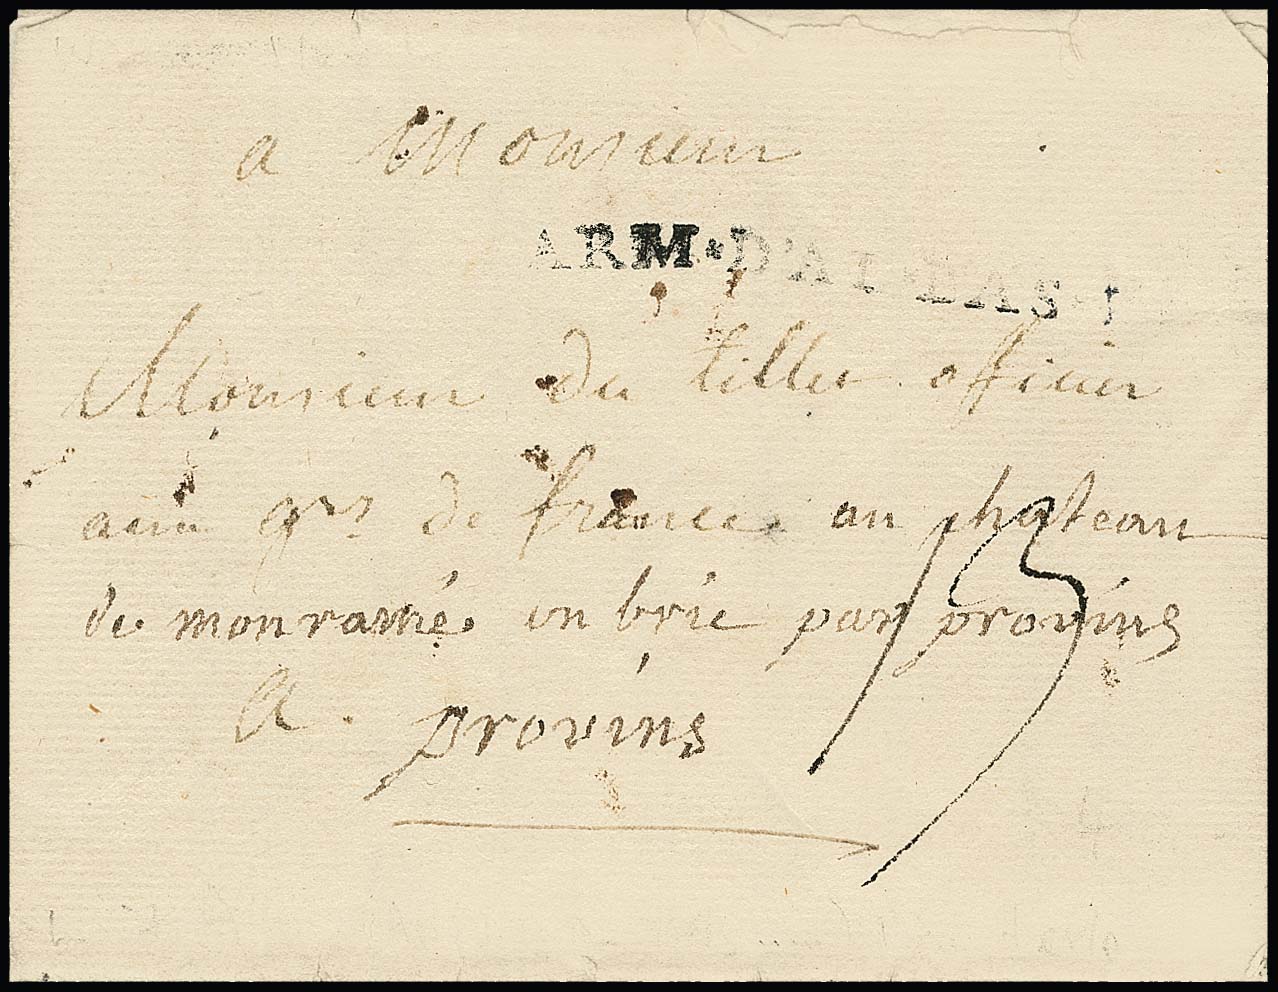 a Monsieur
ARM·D'AL·BAS·
Monsieur du tillet officier
aux grs de france au chateau
de monramé en brie par provins
13
A. provins